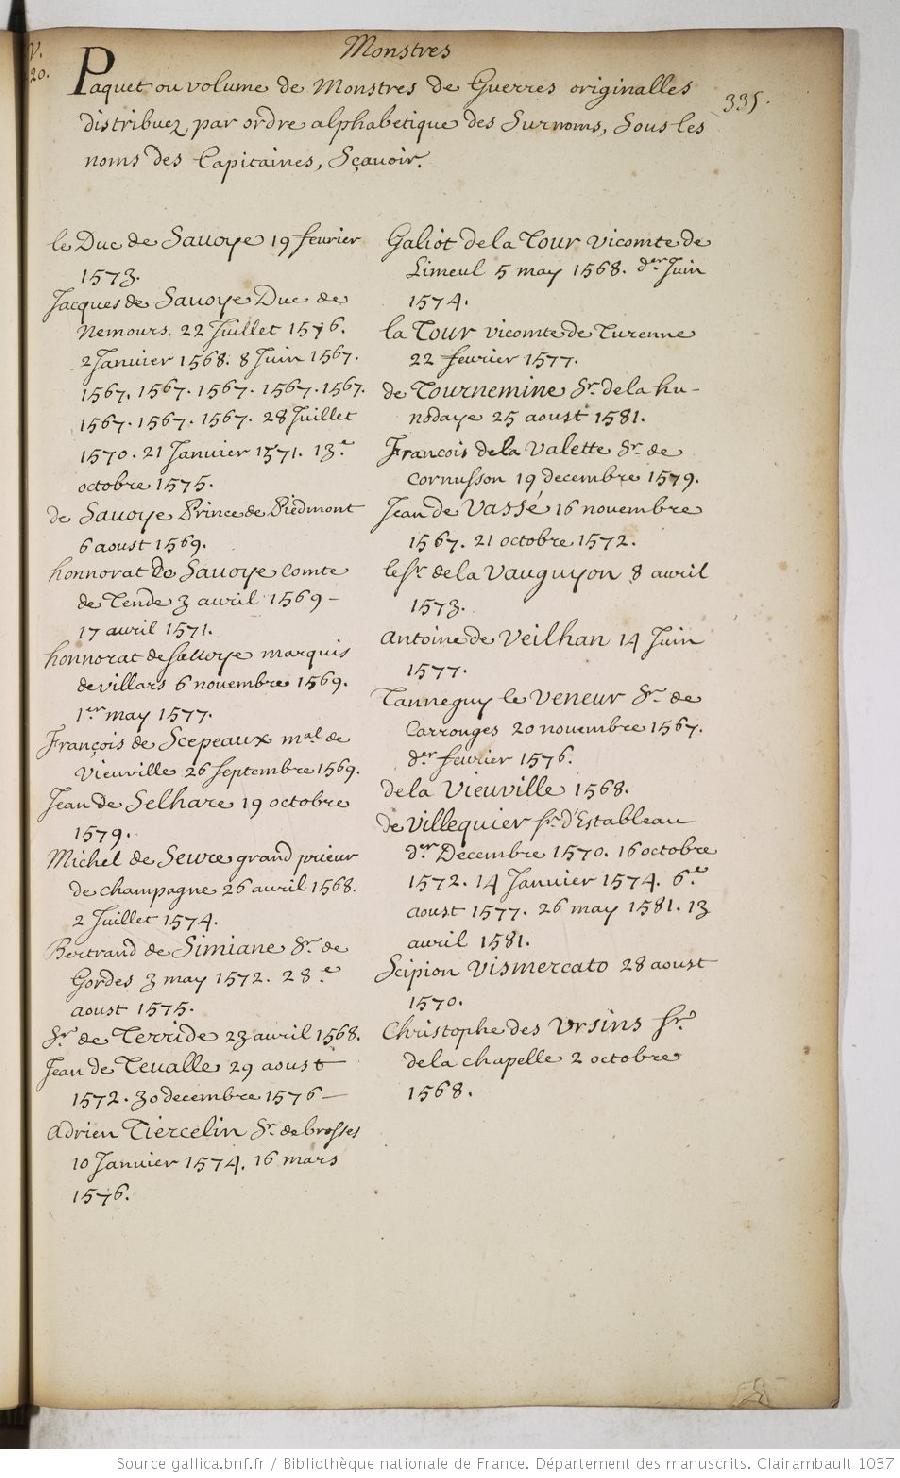 Monstres
V.
20.
Paquet ou volume de Monstres de Guerres originalles
335.
distribuez par ordre alphabetique des Surnoms, Sous les
noms des Capitaines, Sçauoir.
le Duc de Sauoye 19 feurier
1573.
Jacques de Sauoye Duc de
Nemours. 22 Juillet 1576.
2 Januier 1568. 8 Juin 1567.
1567. 1567. 1567. 1567. 1567.
1567. 1567. 1567. 28 Juillet
1570. 21 Januier 1571. 13.e
octobre 1575.
de Sauoye Prince de Piedmont
6 aoust 1569.
honnorat de Sauoye Comte
de Tende 3 auril 1569 –
17 auril 1571.
honnorat de sauoye marquis
de villars 6 nouembre 1569.
1.er may 1577.
François de Scepeaux m.al de
Vieuville 26 septembre 1569.
Jean de Selhare 19 octobre
1579.
Michel de Seure grand prieur
de champagne 26 auril 1568.
2 Juillet 1574.
Bertrand de Simiane Sr. de
Gordes 3 may 1572. 28.e
aoust 1575.
Sr. de Terride 23 auril 1568.
Jean de Teualle 29 aoust
1572. 30 decembre 1576 –
adrien Tiercelin Sr. de brosses
10 Januier 1574. 16 mars
1576.
Galiot de la Tour Vicomte de
Limeul 5 may 1568. der Juin
1574.
la Tour vicomte de Turenne
22 feurier 1577.
de Tournemine Sr. de la hu-
nodaye 25 aoust 1581.
François de la Valette Sr. de
Cornusson 19 decembre 1579.
Jean de Vassé 16 nouembre
1567. 21 octobre 1572.
le Sr. de la Vauguyon 8 auril
1573.
antoine de Veilhan 14 Juin
1577.
Tanneguy le Veneur Sr. de
Carrouges 20 nouembre 1567.
der feurier 1576.
de la Vieuville 1568.
de Villequier Sr. d'Estableau
der Decembre 1570. 16 octobre
1572. 14 Januier 1574. 6.e
aoust 1577. 26 may 1581. 13
auril 1581.
Scipion Vismercato 28 aoust
1570.
Christophe des Ursins Sr.
de la chapelle 2 octobre
1568.
Source gallica.bnf.fr / Bibliothèque nationale de France. Département des manuscrits. Clairambault 1037